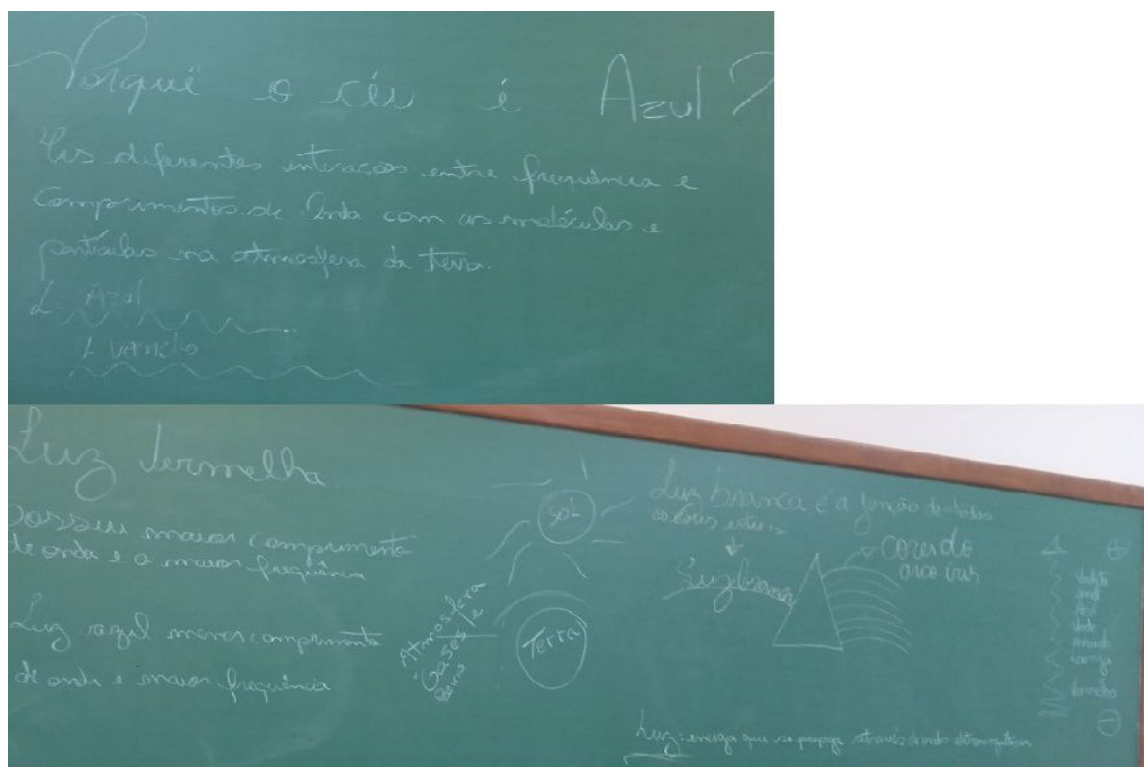 Porquê o céu é Azul?
As diferentes interações entre frequência e
Comprimentos de Onda com as moléculas e
partículas na atmosfera da terra.
L Azul
L Vermelho
Luz Vermelha
Possui maior comprimento
de onda e a menor frequência
Luz azul menor comprimento
de onda e maior frequência
Sol
Atmosfera
Gases e
Terra
Luz branca é a junção de todas
as cores
Luz branca
cores do
arco iris
+
violeta
anil
Azul
verde
amarelo
laranja
vermelho
-
Luz: energia que se propaga através de ondas eletromagnéticas